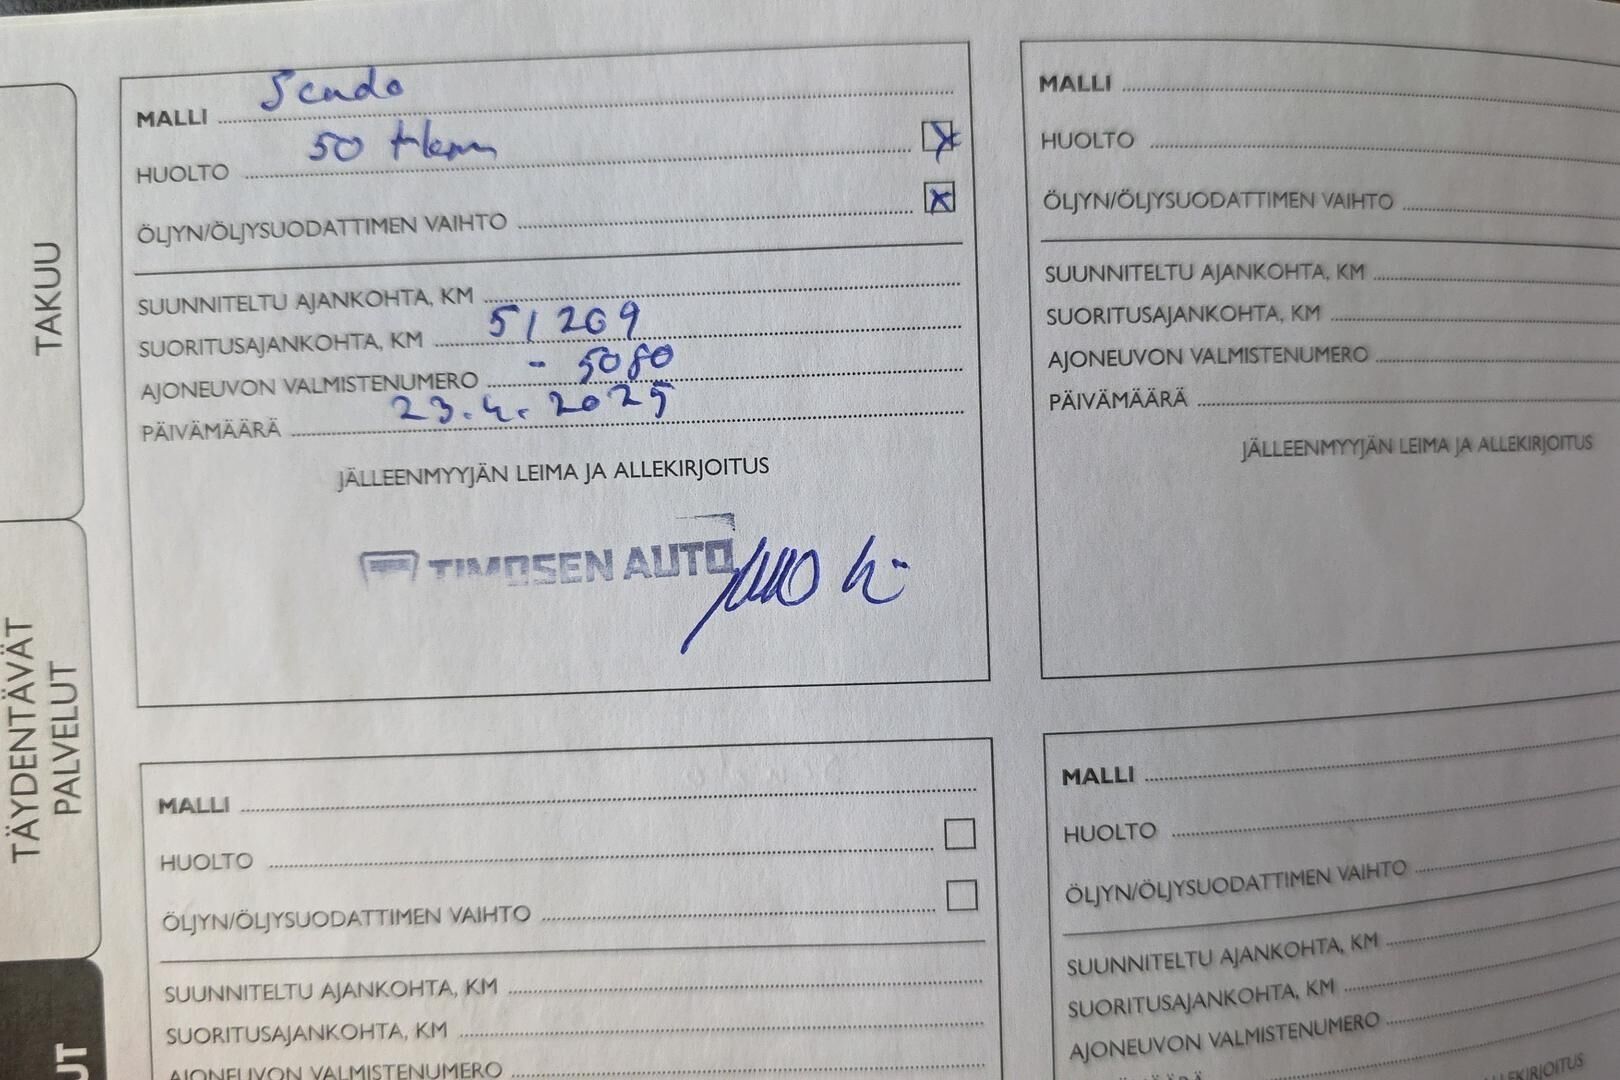 TAKUU
TÄYDENTÄVÄT
PALVELUT
UT
MALLI Scudo
HUOLTO 50 tkm
ÖLJYN/ÖLJYSUODATTIMEN VAIHTO
SUUNNITELTU AJANKOHTA, KM
SUORITUSAJANKOHTA, KM 51209
AJONEUVON VALMISTENUMERO - 5080
PÄIVÄMÄÄRÄ 23.4.2025
JÄLLEENMYYJÄN LEIMA JA ALLEKIRJOITUS
TIMOSEN AUTO
MALLI
HUOLTO
ÖLJYN/ÖLJYSUODATTIMEN VAIHTO
SUUNNITELTU AJANKOHTA, KM
SUORITUSAJANKOHTA, KM
AJONEUVON VALMISTENUMERO
PÄIVÄMÄÄRÄ
JÄLLEENMYYJÄN LEIMA JA ALLEKIRJOITUS
MALLI
HUOLTO
ÖLJYN/ÖLJYSUODATTIMEN VAIHTO
SUUNNITELTU AJANKOHTA, KM
SUORITUSAJANKOHTA, KM
AJONEUVON VALMISTENUMERO
MALLI
HUOLTO
ÖLJYN/ÖLJYSUODATTIMEN VAIHTO
SUUNNITELTU AJANKOHTA, KM
SUORITUSAJANKOHTA, KM
AJONEUVON VALMISTENUMERO